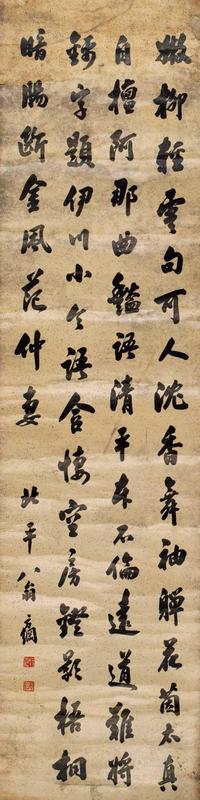 嫩柳輕雲句可人沈香舞袖嚲花茵太真
自擅阿那曲豔語清平本不倫遠道難將
錦字題伊川小令語含悽空房鐙影梧桐
暗腸斷金風范仲妻
北平翁方綱